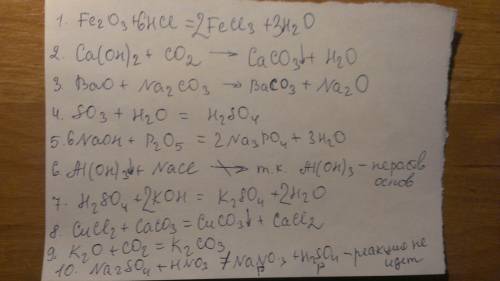 1. Fe₂O₃ + 6HCl = 2FeCl₃ + 3H₂O
2. Ca(OH)₂ + CO₂ → CaCO₃↓ + H₂O
3. BaO + Na₂CO₃ → BaCO₃ + Na₂O
4. SO₃ + H₂O = H₂SO₄
5. 6NaOH + P₂O₅ = 2Na₃PO₄ + 3H₂O
6. Al(OH)₃↓ + NaCl ↛ т.к. Al(OH)₃ - нераств
основ
7. H₂SO₄ + 2KOH = K₂SO₄ + 2H₂O
8. CuCl₂ + CaCO₃ = CuCO₃↓ + CaCl₂
9. K₂O + CO₂ = K₂CO₃
10. Na₂SO₄ + HNO₃ ≠ NaNO₃ + H₂SO₄ - реакция не
р р идет